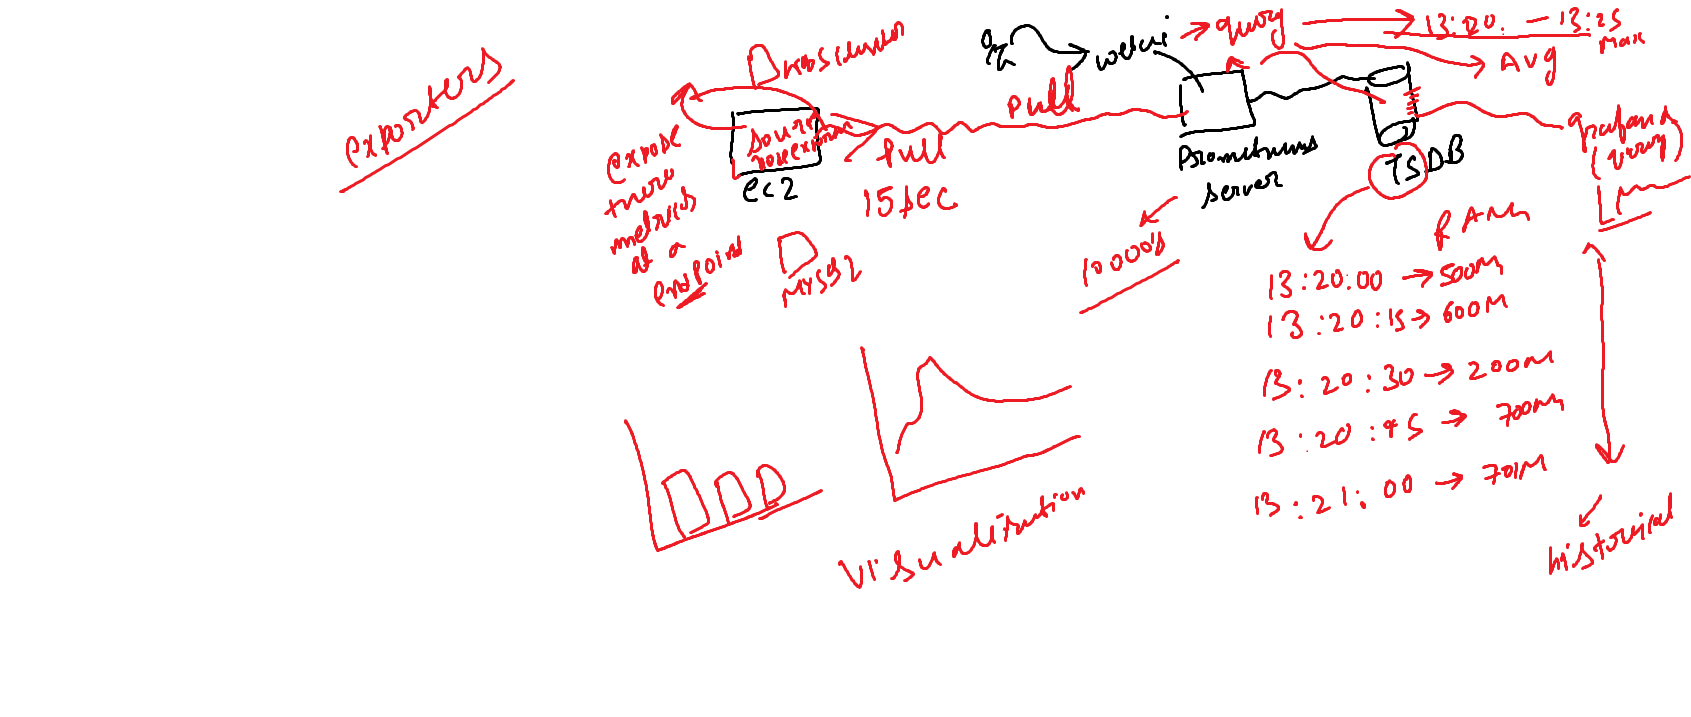 exporters
k8s cluster
source
node exporter
ec2
expose
these
metrics
at a
endpoint
MYSQL
Pull
15sec
Pull
webui
query
13:20. - 13:25
Max
Avg
Prometheus
server
10000's
TSDB
grafana
(query)
RAM
13:20:00 → 500M
13:20:15 → 600M
13:20:30 → 200M
13:20:45 → 700M
13:21:00 → 701M
historical
Visualization